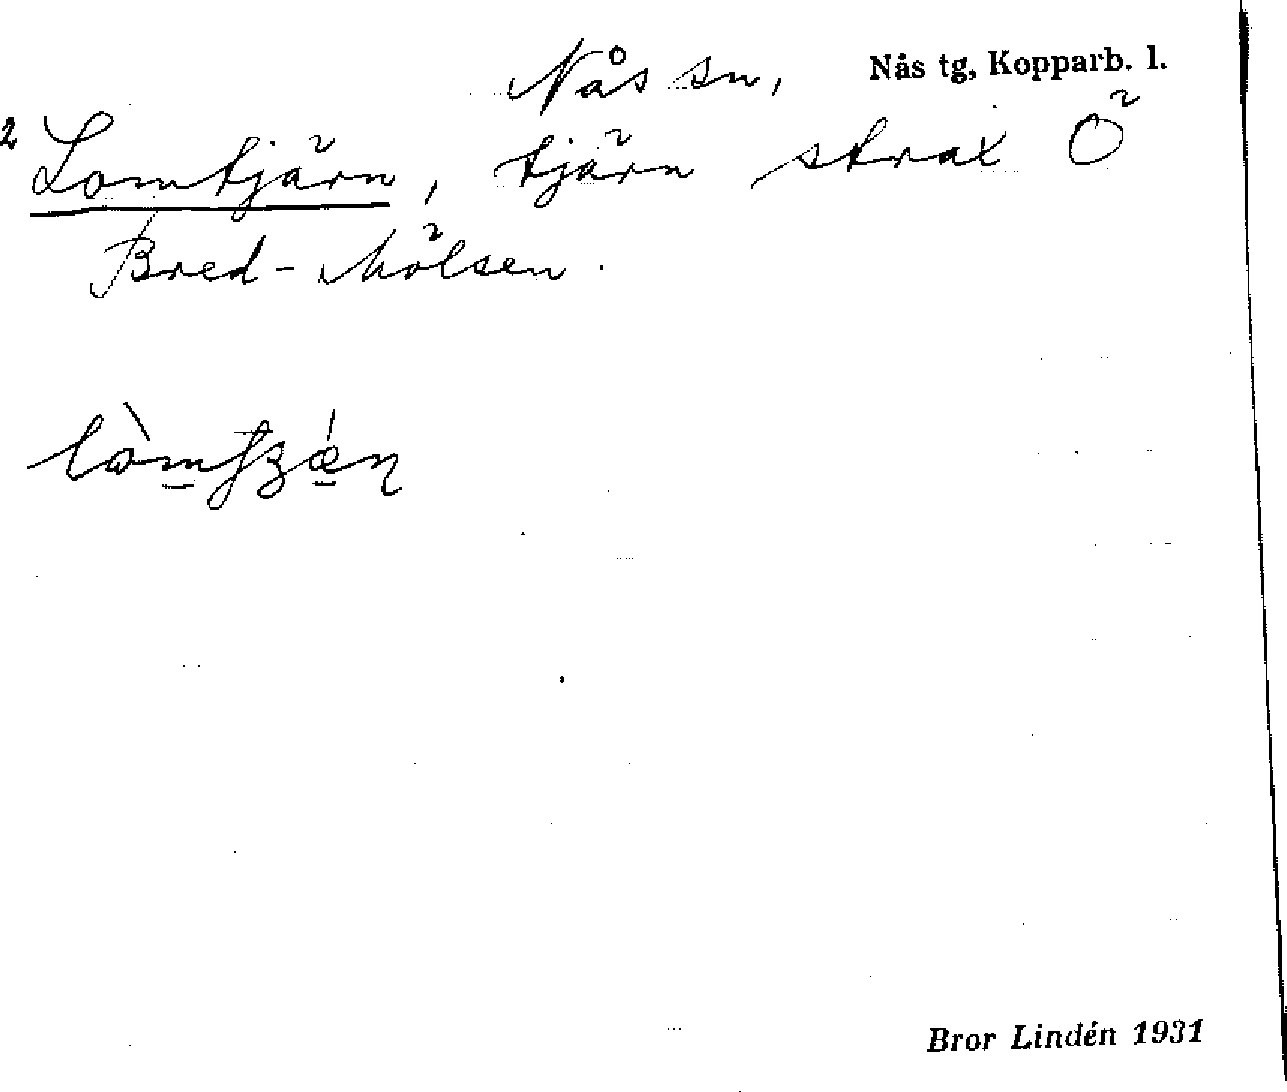 Nås sn, Nås tg, Kopparb. l.
2 Lomtjärn, tjärn strax Ö
Bred-Mölsen.
Bror Lindén 1931